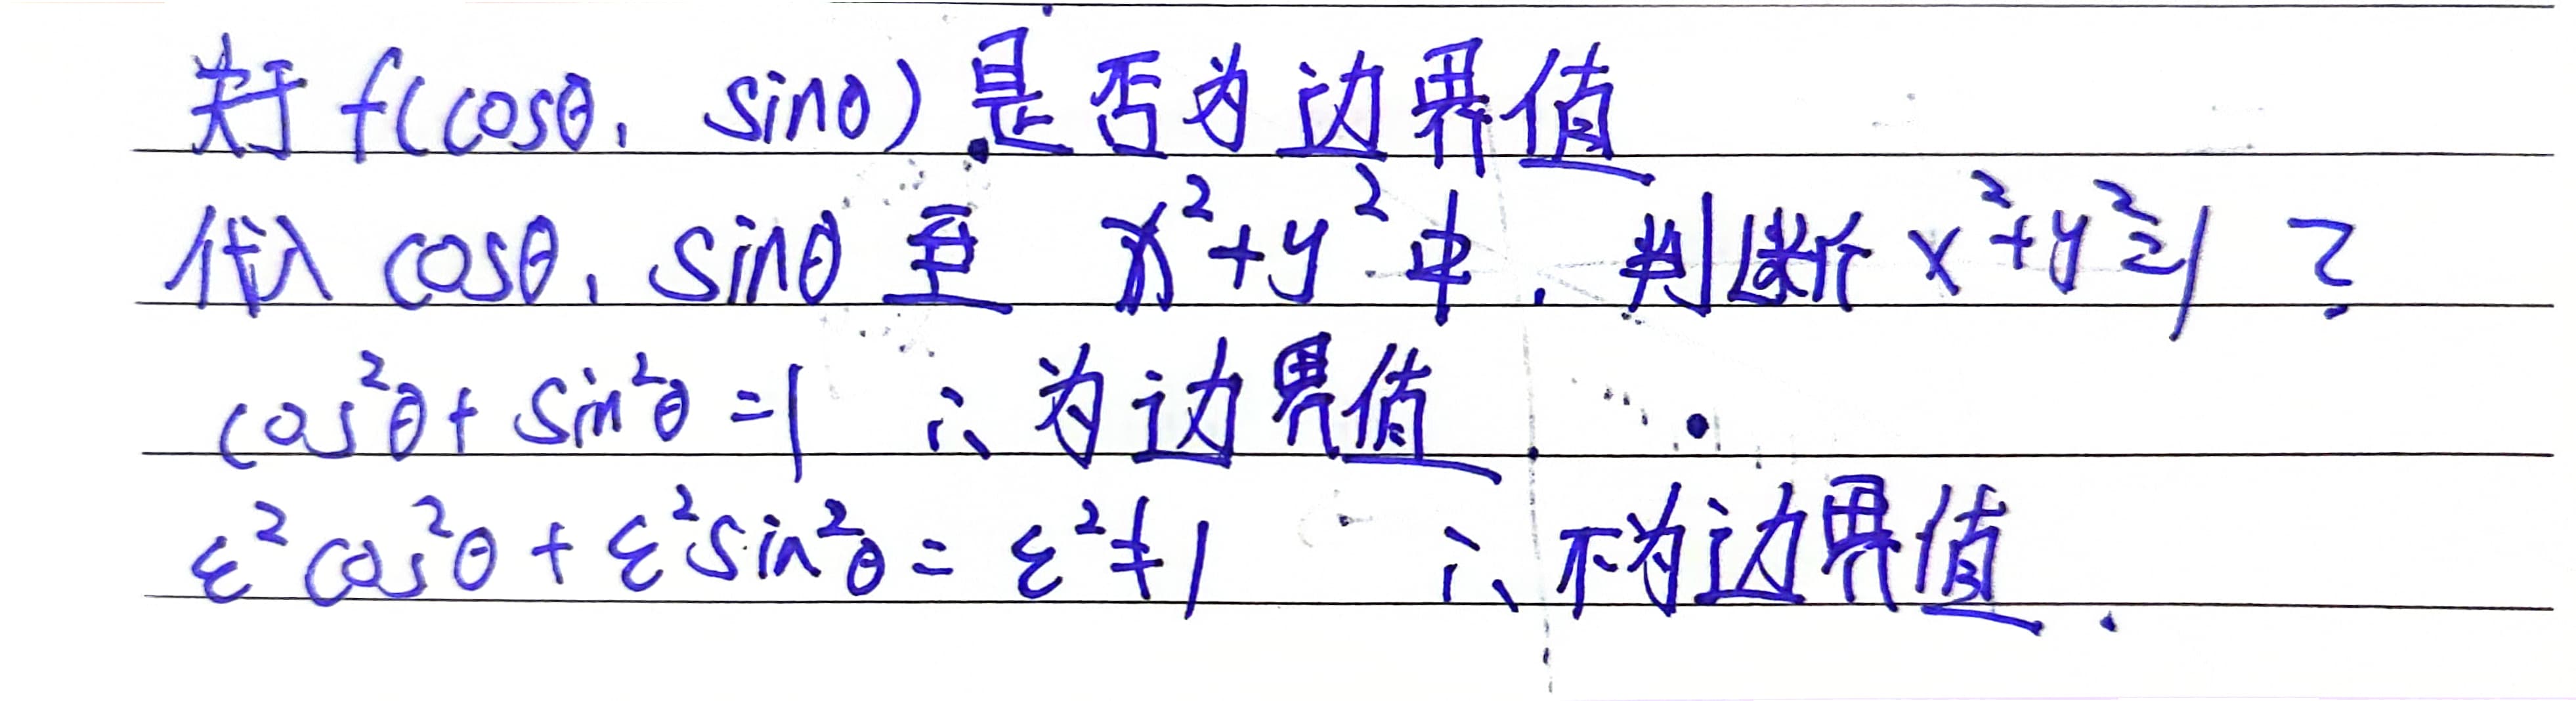 关于 f(cosθ, sinθ) 是否为边界值
代入 cosθ, sinθ 至 x²+y² 中, 判断 x²+y²=1 ?
cos²θ + sin²θ = 1 ∴ 为边界值
ε²cos²θ + ε²sin²θ = ε² ≠ 1 ∴ 不为边界值.